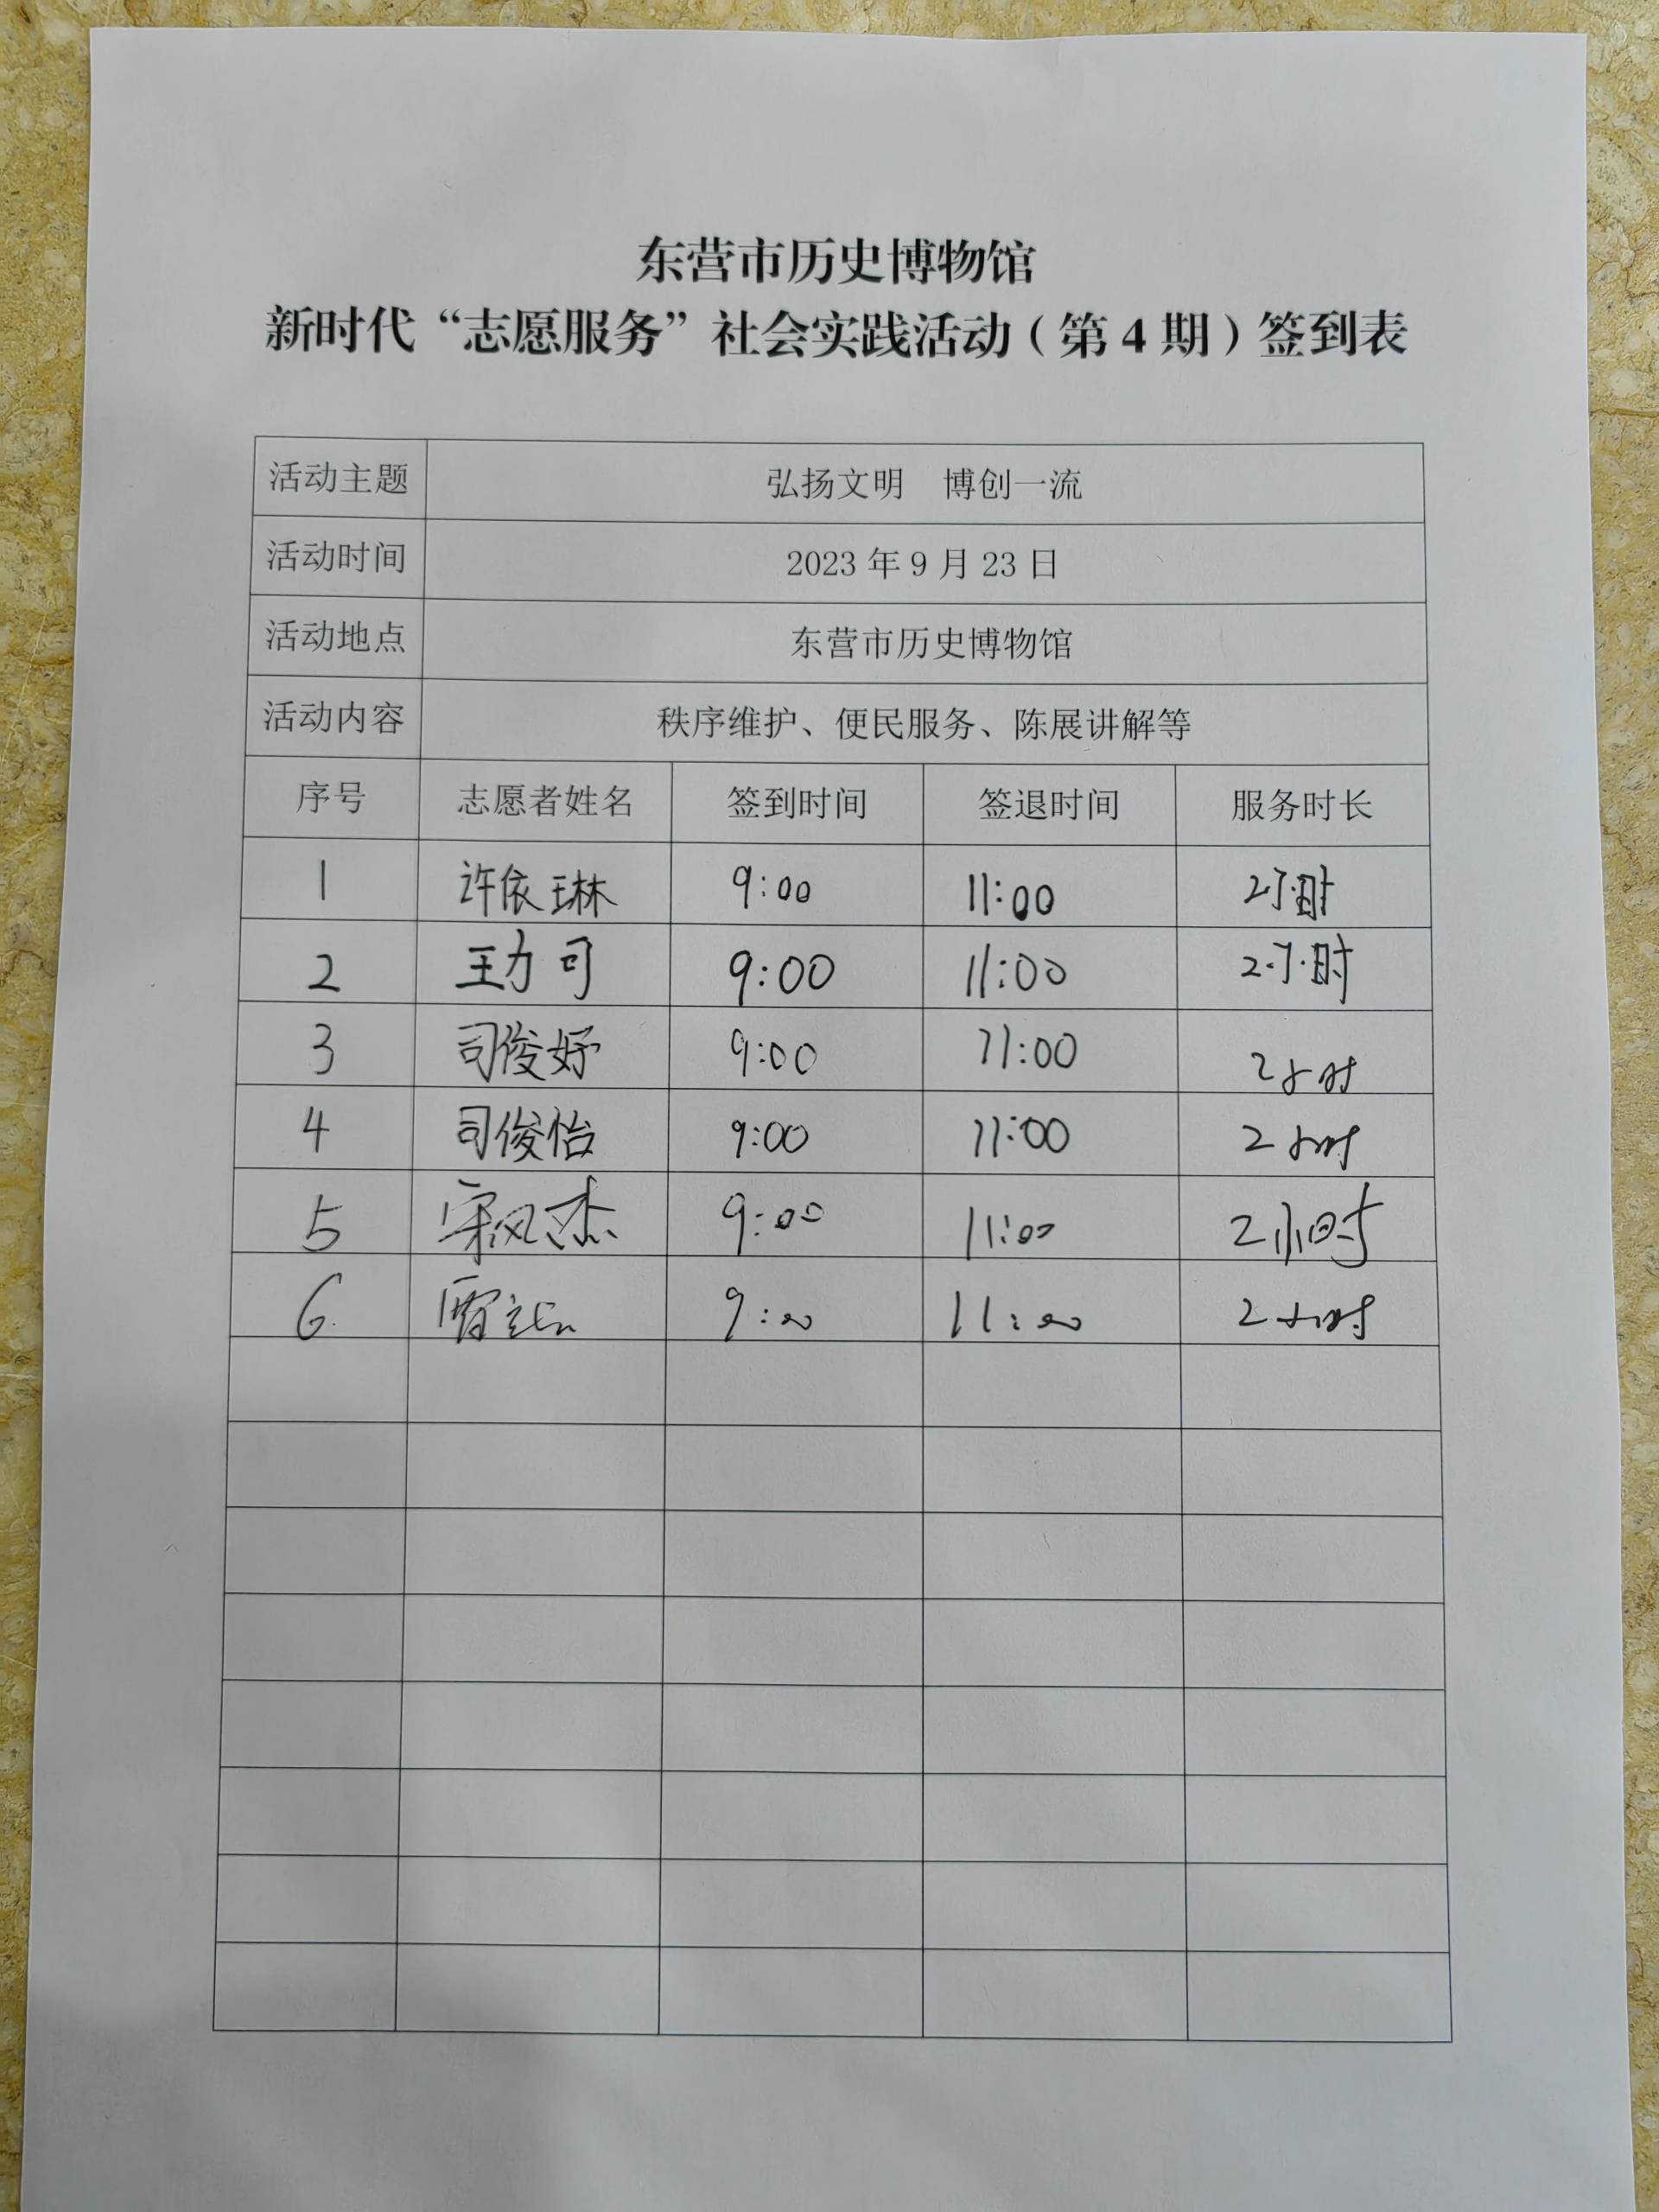 东营市历史博物馆
新时代“志愿服务”社会实践活动（第 4 期）签到表
活动主题 弘扬文明 博创一流
活动时间 2023 年 9 月 23 日
活动地点 东营市历史博物馆
活动内容 秩序维护、便民服务、陈展讲解等
序号 志愿者姓名 签到时间 签退时间 服务时长
1 许依琳 9:00 11:00 2小时
2 王力司 9:00 11:00 2小时
3 司俊好 9:00 11:00 2小时
4 司俊怡 9:00 11:00 2小时
5 宋风杰 9:00 11:00 2小时
6 9:00 11:00 2小时